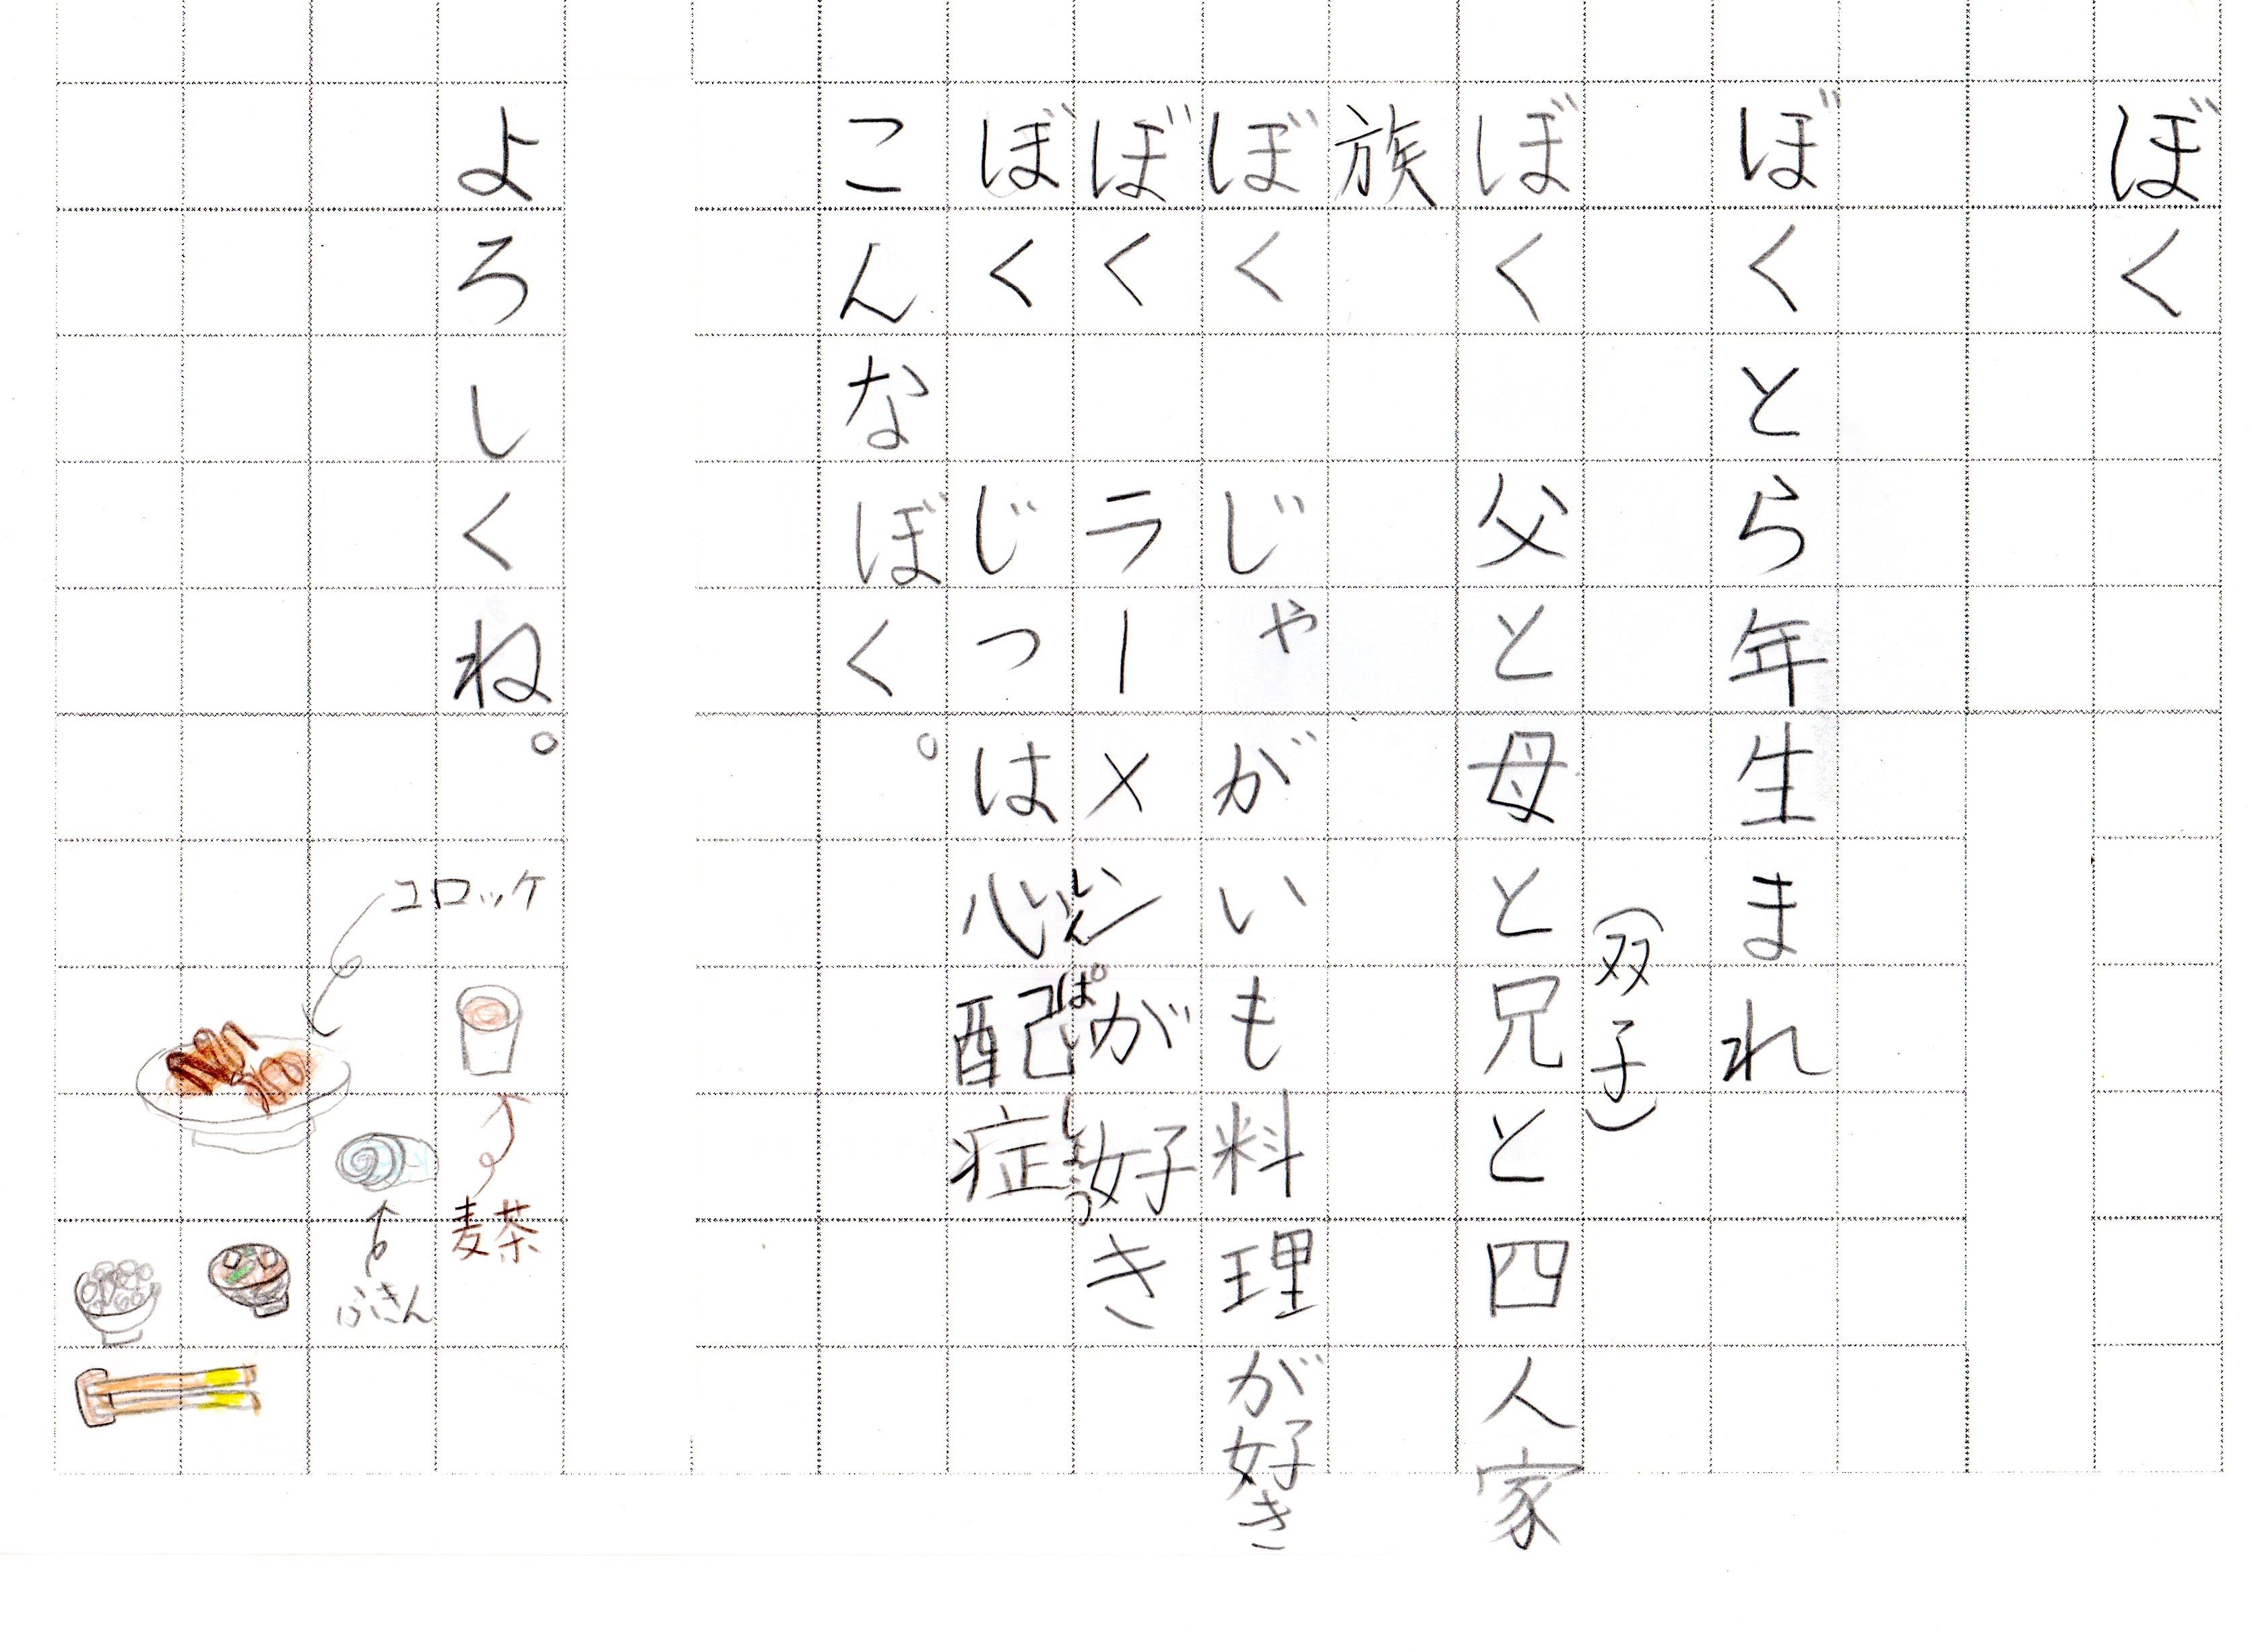 ぼく
ぼくとら年生まれ
（双子）
ぼく　父と母と兄と四人家
族
ぼく　じゃがいも料理が好き
ぼく　ラーメンが好き
しんぱいしょう
ぼく　じつは心配症
こんなぼく。
よろしくね。
コロッケ
麦茶
ふきん